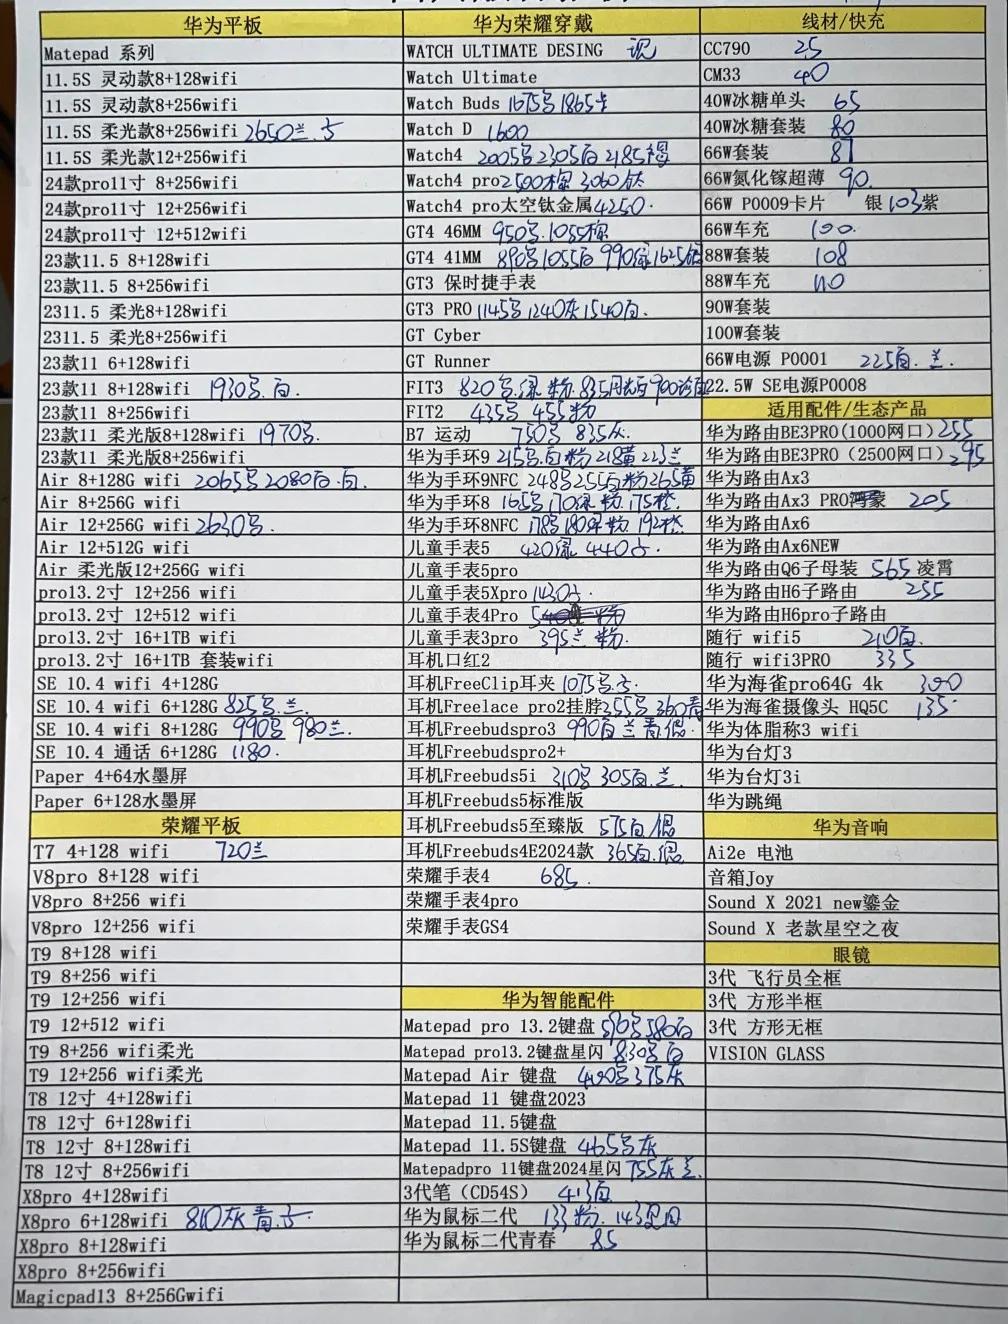 华为平板
Matepad 系列
11.5S 灵动款8+128wifi
11.5S 灵动款8+256wifi
11.5S 柔光款8+256wifi 2650兰.
11.5S 柔光款12+256wifi
24款pro11寸 8+256wifi
24款pro11寸 12+256wifi
24款pro11寸 12+512wifi
23款11.5 8+128wifi
23款11.5 8+256wifi
2311.5 柔光8+128wifi
2311.5 柔光8+256wifi
23款11 6+128wifi
23款11 8+128wifi 1930 白
23款11 8+256wifi
23款11 柔光版8+128wifi 1970
23款11 柔光版8+256wifi
Air 8+128G wifi 2065 2080
Air 8+256G wifi
Air 12+256G wifi 2630
Air 12+512G wifi
Air 柔光版12+256G wifi
pro13.2寸 12+256 wifi
pro13.2寸 12+512 wifi
pro13.2寸 16+1TB wifi
pro13.2寸 16+1TB 套装wifi
SE 10.4 wifi 4+128G
SE 10.4 wifi 6+128G 825 兰.
SE 10.4 wifi 8+128G 990 980兰.
SE 10.4 通话 6+128G 1180.
Paper 4+64水墨屏
Paper 6+128水墨屏
荣耀平板
T7 4+128 wifi 720兰
V8pro 8+128 wifi
V8pro 8+256 wifi
V8pro 12+256 wifi
T9 8+128 wifi
T9 8+256 wifi
T9 12+256 wifi
T9 12+512 wifi
T9 8+256 wifi柔光
T9 12+256 wifi柔光
T8 12寸 4+128wifi
T8 12寸 6+128wifi
T8 12寸 8+128wifi
T8 12寸 8+256wifi
X8pro 4+128wifi
X8pro 6+128wifi 810灰 青.
X8pro 8+128wifi
X8pro 8+256wifi
Magicpad13 8+256Gwifi
华为荣耀穿戴
WATCH ULTIMATE DESING 现
Watch Ultimate
Watch Buds 1675 1865
Watch D 1600
Watch4 2005 2305白 2185
Watch4 pro 2500棕 3060钛
Watch4 pro太空钛金属 4250.
GT4 46MM 950 1055棕
GT4 41MM 890 1055白 990绿 1625
GT3 保时捷手表
GT3 PRO 1145 1240灰 1540白.
GT Cyber
GT Runner
FIT3 820 绿 粉. 835 900
FIT2 435 455粉
B7 运动 750 835灰.
华为手环9 215 白 粉 218黄 223兰
华为手环9NFC 248 255白粉 265黄
华为手环8 165 170绿 粉 175橙
华为手环8NFC 178 180绿 粉 192橙
儿童手表5 420绿 440
儿童手表5pro
儿童手表5Xpro 1430
儿童手表4Pro
儿童手表3pro 395兰 粉.
耳机口红2
耳机FreeClip耳夹 1075
耳机Freelace pro2挂脖 255 360青
耳机Freebudspro3 990白 兰 青.
耳机Freebudspro2+
耳机Freebuds5i 310 305白.兰.
耳机Freebuds5标准版
耳机Freebuds5至臻版 575白
耳机Freebuds4E2024款 365白.
荣耀手表4 685.
荣耀手表4pro
荣耀手表GS4
华为智能配件
Matepad pro 13.2键盘 580白
Matepad pro13.2键盘星闪 830 白
Matepad Air 键盘 490 375灰
Matepad 11 键盘2023
Matepad 11.5键盘
Matepad 11.5S键盘 465 灰
Matepadpro 11键盘2024星闪 755灰 兰.
3代笔（CD54S） 413白
华为鼠标二代 133 粉. 143
华为鼠标二代青春 85
线材/快充
CC790 25
CM33 40
40W冰糖单头 65
40W冰糖套装 80
66W套装 87
66W氮化镓超薄 90.
66W P0009卡片 银103紫
66W车充 100.
88W套装 108
88W车充 110
90W套装
100W套装
66W电源 P0001 225白.兰.
22.5W SE电源P0008
适用配件/生态产品
华为路由BE3PRO(1000网口) 255
华为路由BE3PRO（2500网口） 295
华为路由Ax3
华为路由Ax3 PRO鸿蒙 205
华为路由Ax6
华为路由Ax6NEW
华为路由Q6子母装 565 凌霄
华为路由H6子路由 255
华为路由H6pro子路由
随行 wifi5 210白.
随行 wifi3PRO 335
华为海雀pro64G 4k 300
华为海雀摄像头 HQ5C 135
华为体脂称3 wifi
华为台灯3
华为台灯3i
华为跳绳
华为音响
Ai2e 电池
音箱Joy
Sound X 2021 new鎏金
Sound X 老款星空之夜
眼镜
3代 飞行员全框
3代 方形半框
3代 方形无框
VISION GLASS